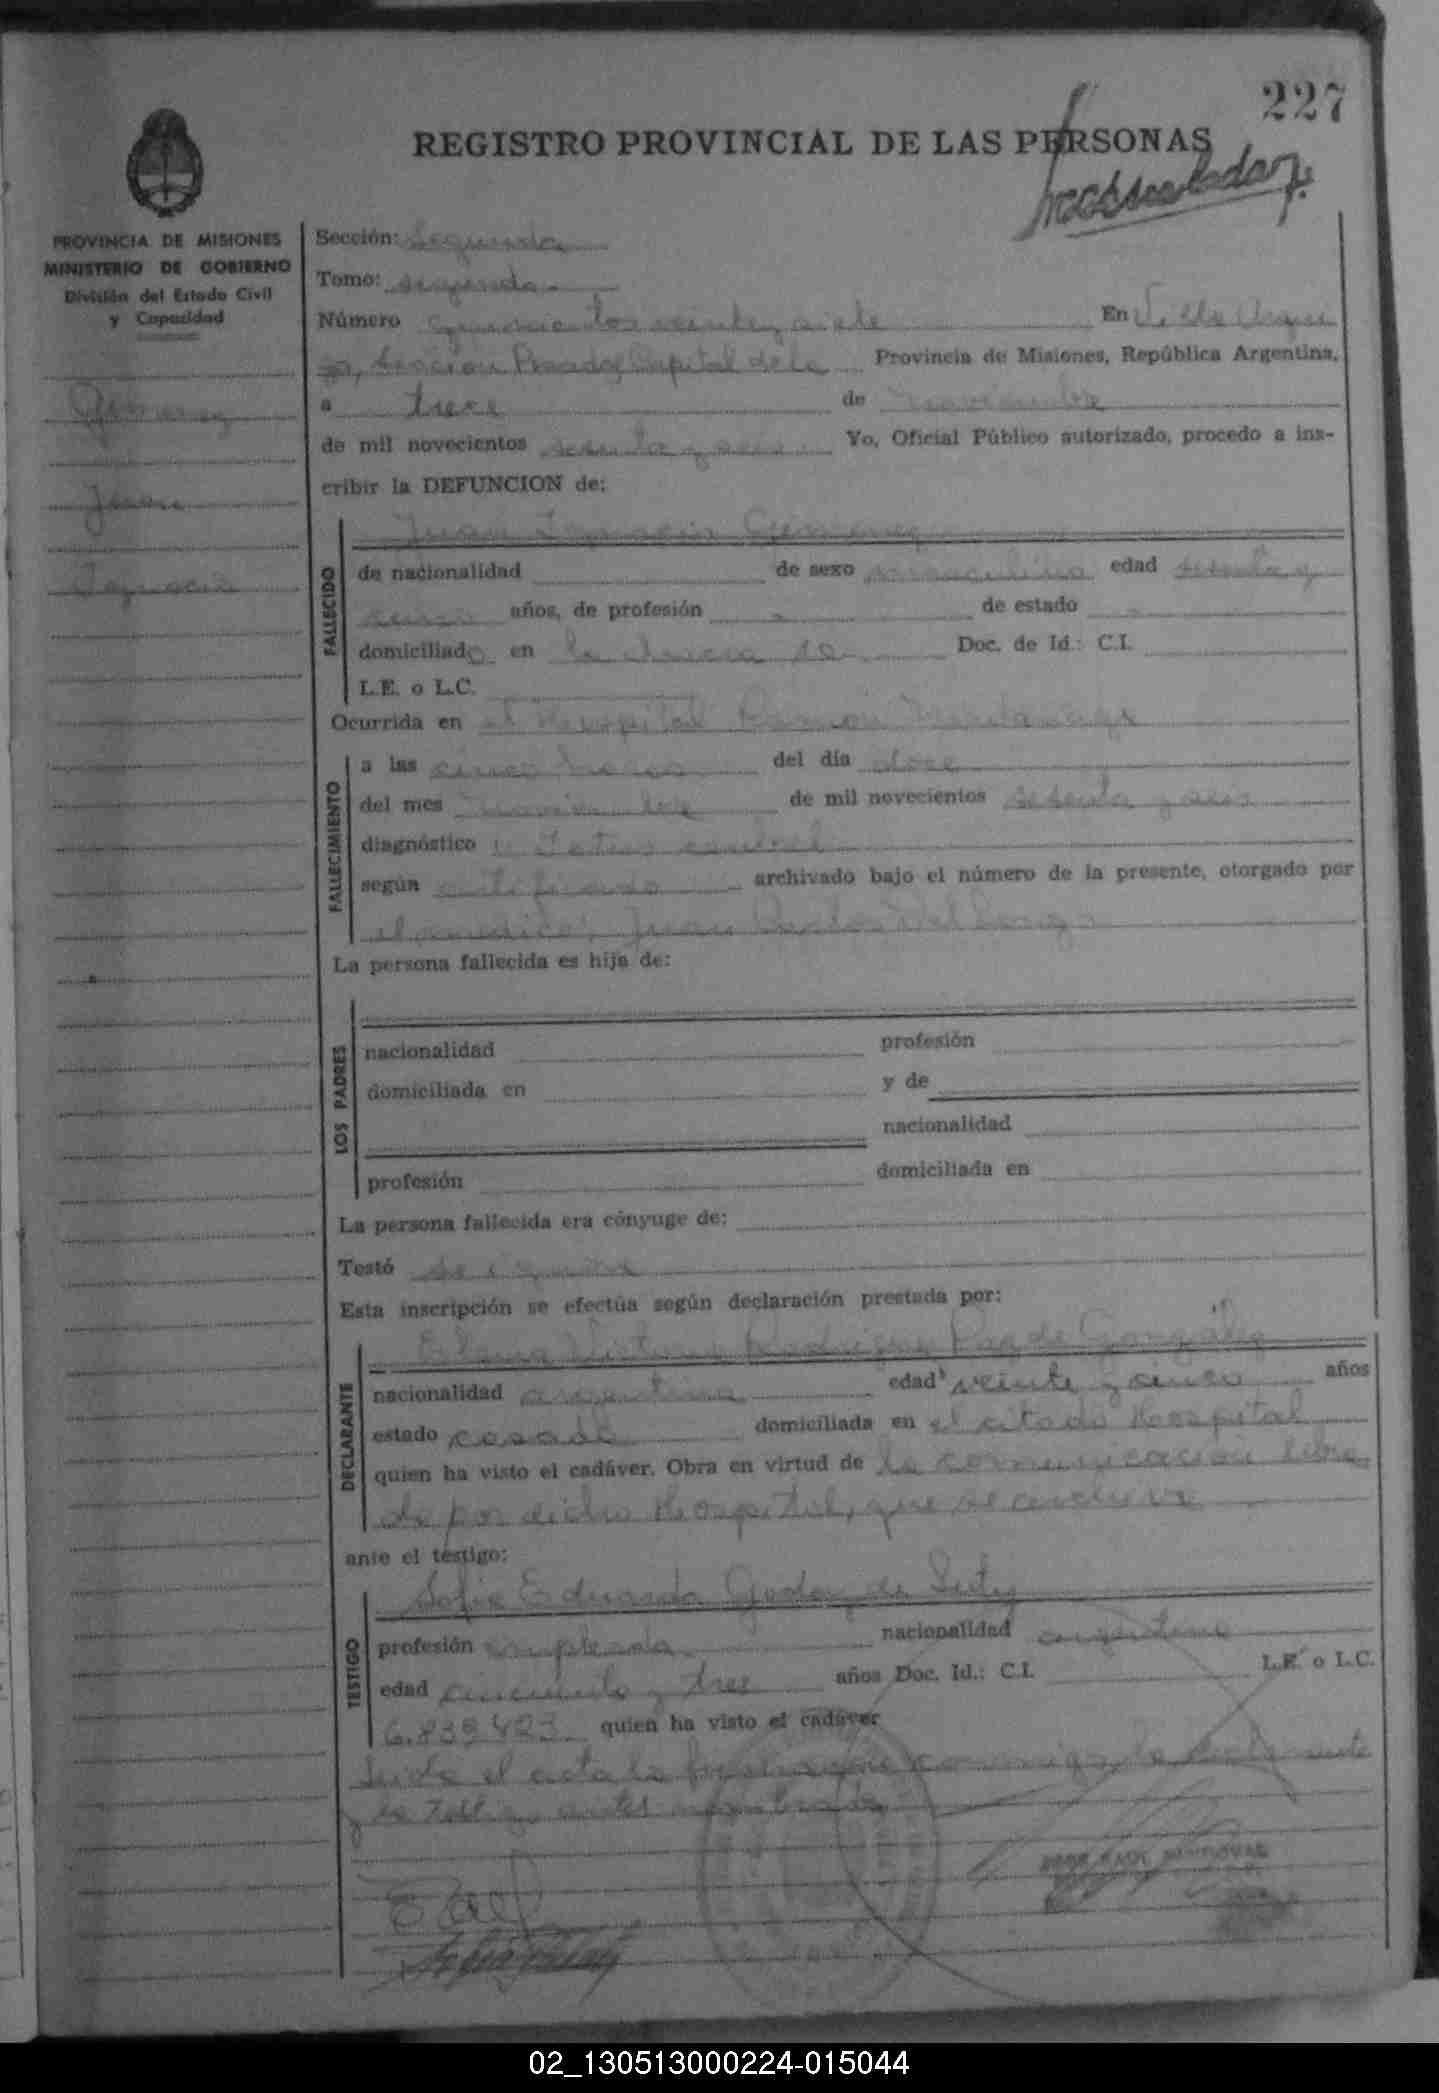 227
REGISTRO PROVINCIAL DE LAS PERSONAS
PROVINCIA DE MISIONES
MINISTERIO DE GOBIERNO
División del Estado Civil
y Capacidad
Gimenez
Juan
Ignacio
Sección: Segunda
Tomo: segundo
Número quinientos veinte y siete En Villa Urqui
za, Sección Posadas Capital de la Provincia de Misiones, República Argentina,
a trece de noviembre
de mil novecientos sesenta y seis Yo, Oficial Público autorizado, procedo a ins-
cribir la DEFUNCION de:
FALLECIDO
Juan Ignacio Gimenez
de nacionalidad de sexo masculino edad sesenta y
cinco años, de profesión de estado
domiciliado en la chacra Doc. de Id.: C.I.
L.E. o L.C.
Ocurrida en el Hospital Ramón Madariaga
FALLECIMIENTO
a las cinco horas del día doce
del mes noviembre de mil novecientos sesenta y seis
diagnóstico
según certificado archivado bajo el número de la presente, otorgado por
el medico: Juan Carlos
La persona fallecida es hija de:
LOS PADRES
nacionalidad profesión
domiciliada en y de
nacionalidad
profesión domiciliada en
La persona fallecida era cónyuge de:
Testó se ignora
Esta inscripción se efectúa según declaración prestada por:
DECLARANTE
Rodriguez Paz de González
nacionalidad argentina edad veinte y cinco años
estado casada domiciliada en el citado Hospital
quien ha visto el cadáver. Obra en virtud de la comunicación libra
da por dicho Hospital, que se archiva
ante el testigo:
TESTIGO
Sofia Eduarda Godoy de
profesión empleada nacionalidad argentina
edad cincuenta y tres años Doc. Id.: C.I. L.E. o L.C.
6.839.423 quien ha visto el cadáver
Leida el acta la firman conmigo la declarante
y la testigo antes nombrada
02_130513000224-015044